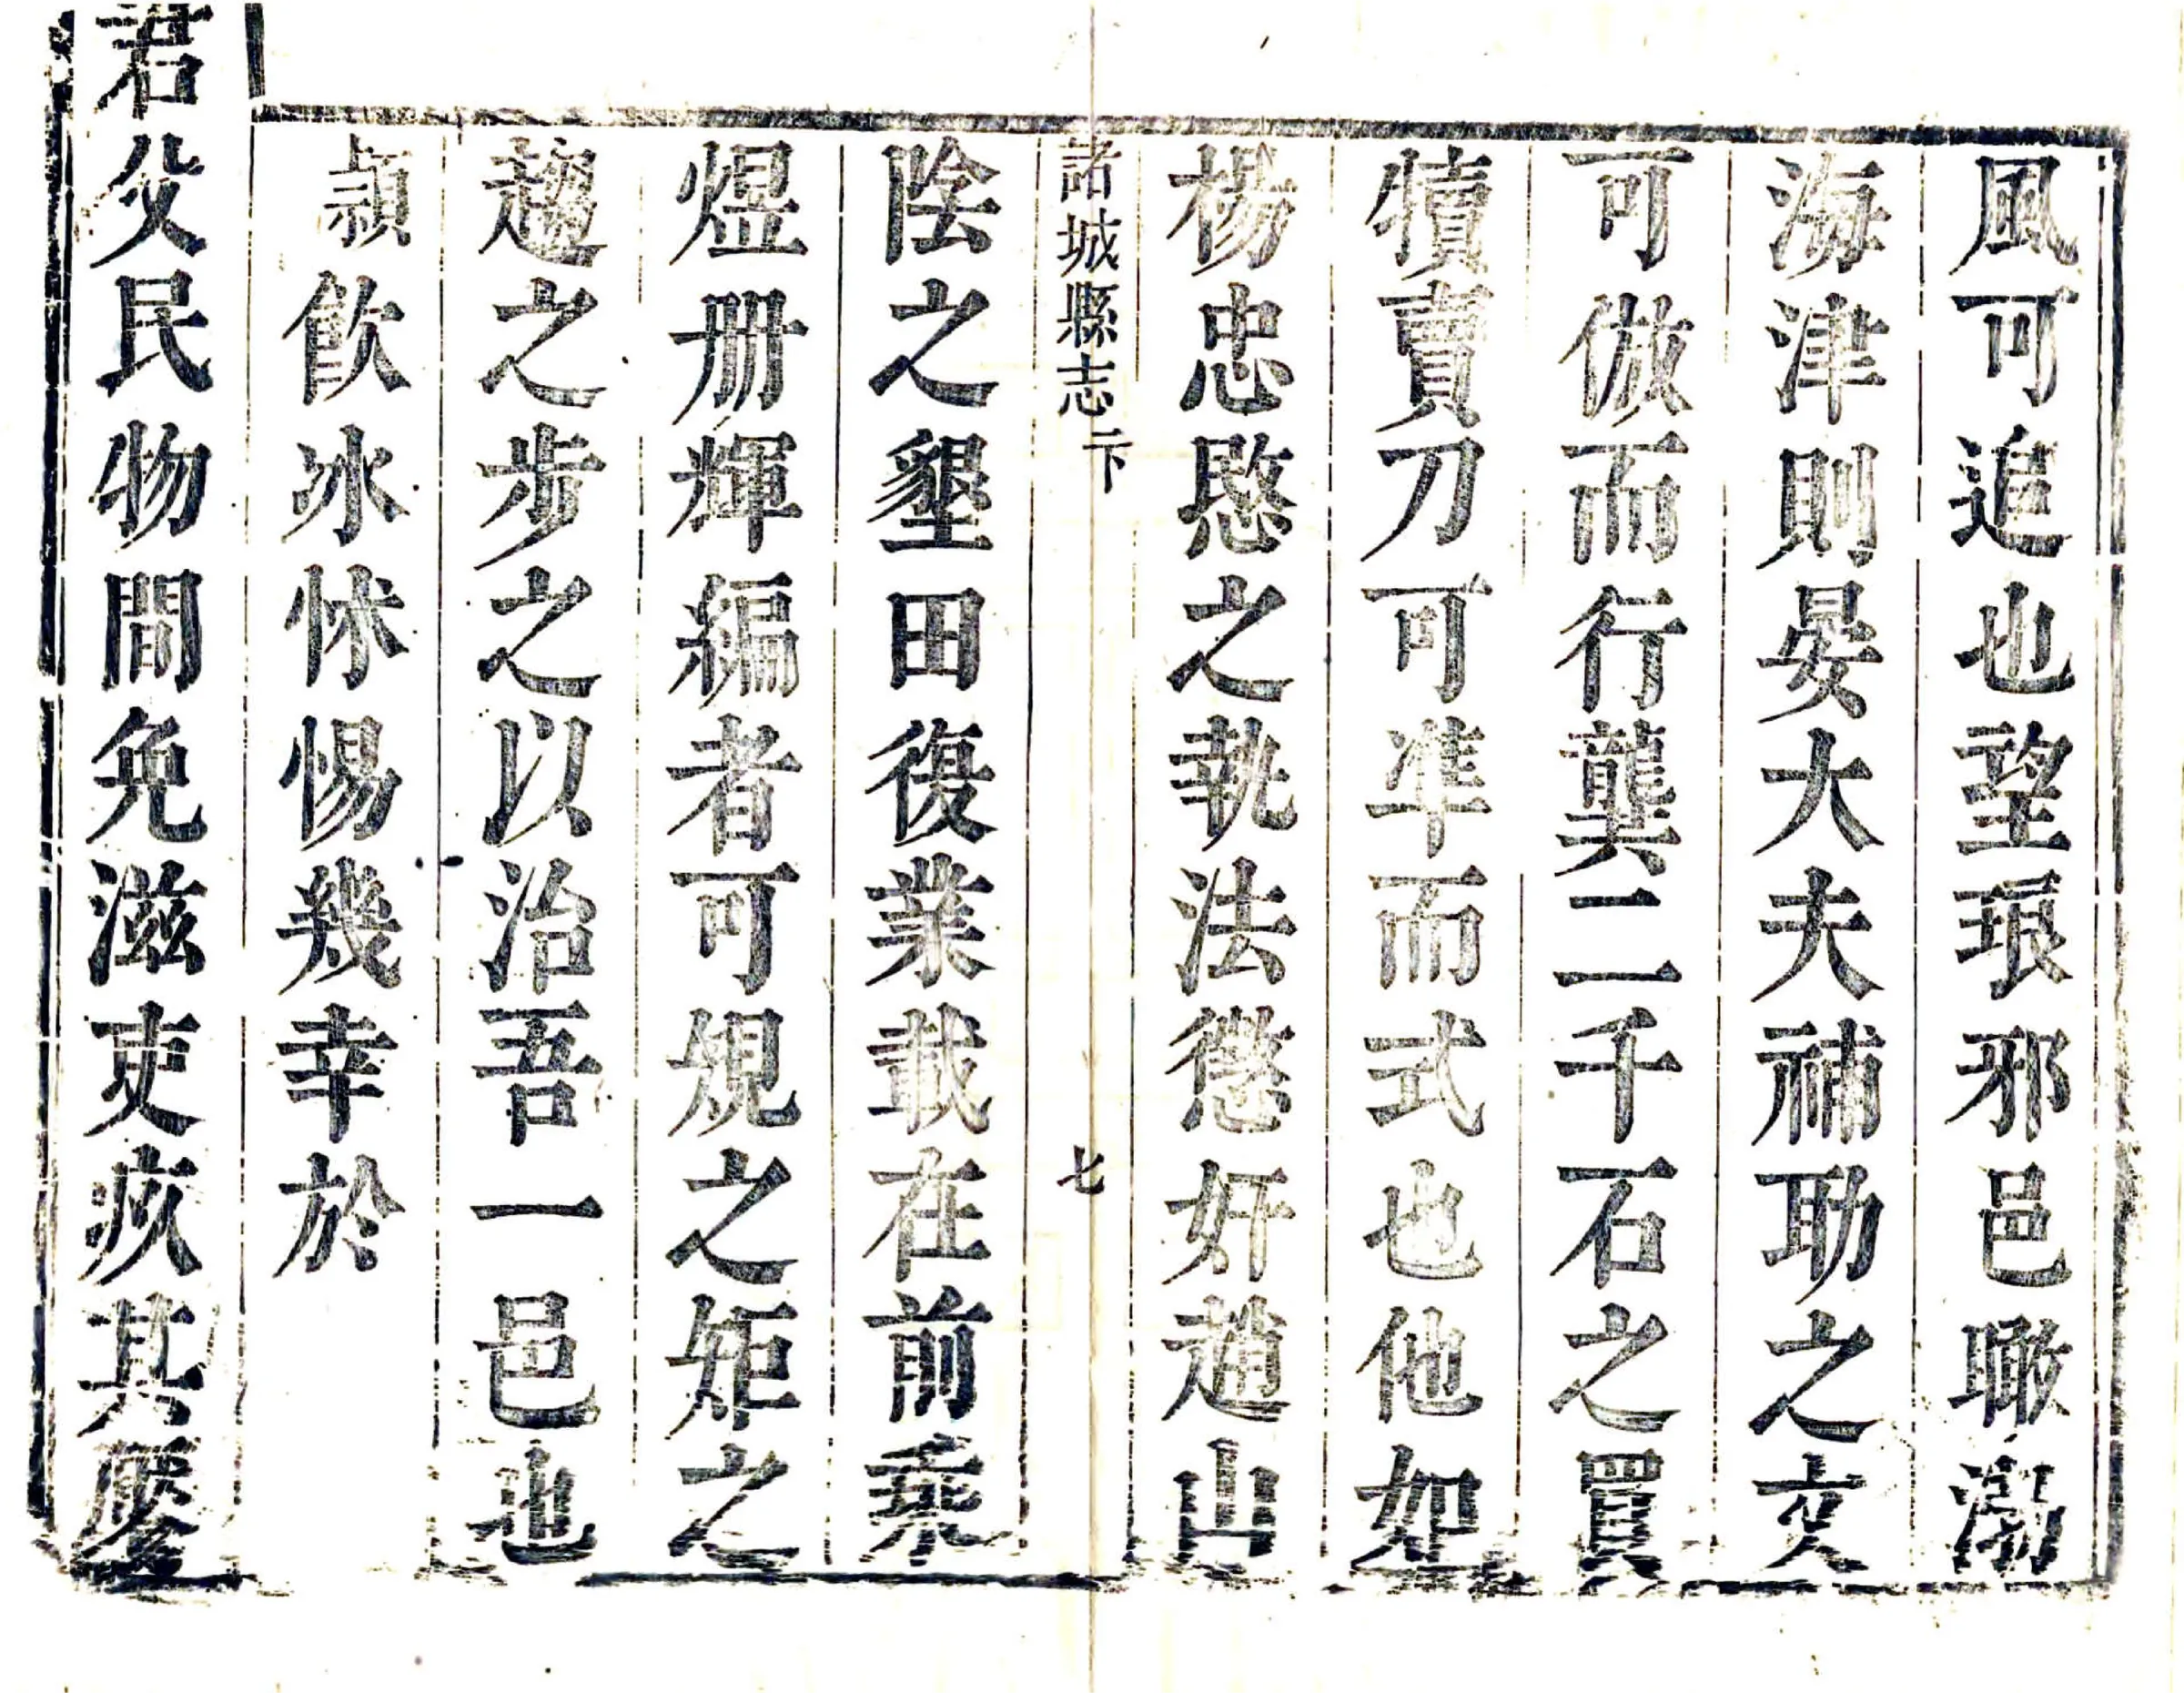 風可追也望琅邪邑瞰渤
海津則晏大夫補助之政
可倣而行龔二千石之買
犢賣刀可準而式也他如
楊忠愍之執法懲奸趙山
諸城縣志 二下 七
陰之墾田復業載在前乘
煜册輝編者可規之矩之
趨之步之以治吾一邑也
頴飮冰怵惕幾幸於
君父民物間免滋吏疚其鑒